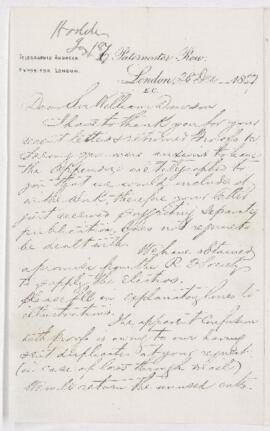 Hodder
Telegraphic Address
Expositor London.
27 Paternoster Row.
London, 28 Dec 1887
E.C.
Dear Sir William Dawson
I have to thank you for your
recent letters & returned proofs
you were anxious to have
the Appendix we telegraphed to
you that we would include it
in the book, therefore your letter
just received suggesting separate
publication, does not require
to be dealt with.
We have obtained
a promise from the R. Society
to supply the electros.
please fill in explanatory lines to
illustrations.
The apparent confusion
with proofs is owing to our having
sent duplicates at your request
(in case of loss through mail)
We will return the unused cuts.